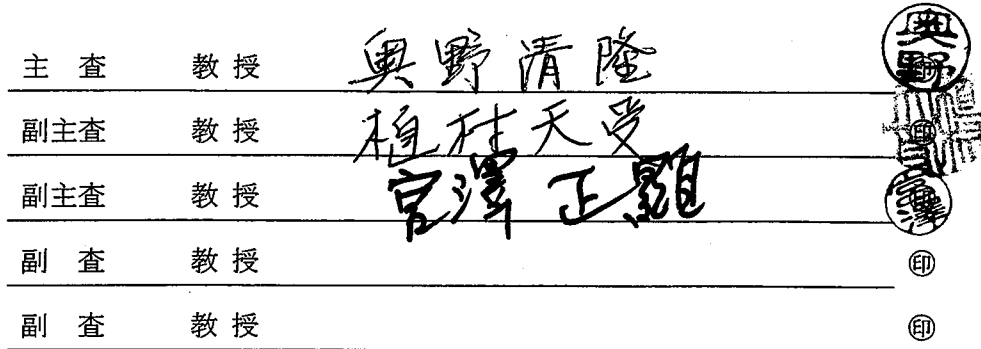 主 査 教 授 奥野清隆 奥野
副主査 教 授 植村天受 印
副主査 教 授 宮澤 正顯 宮澤
副 査 教 授 印
副 査 教 授 印